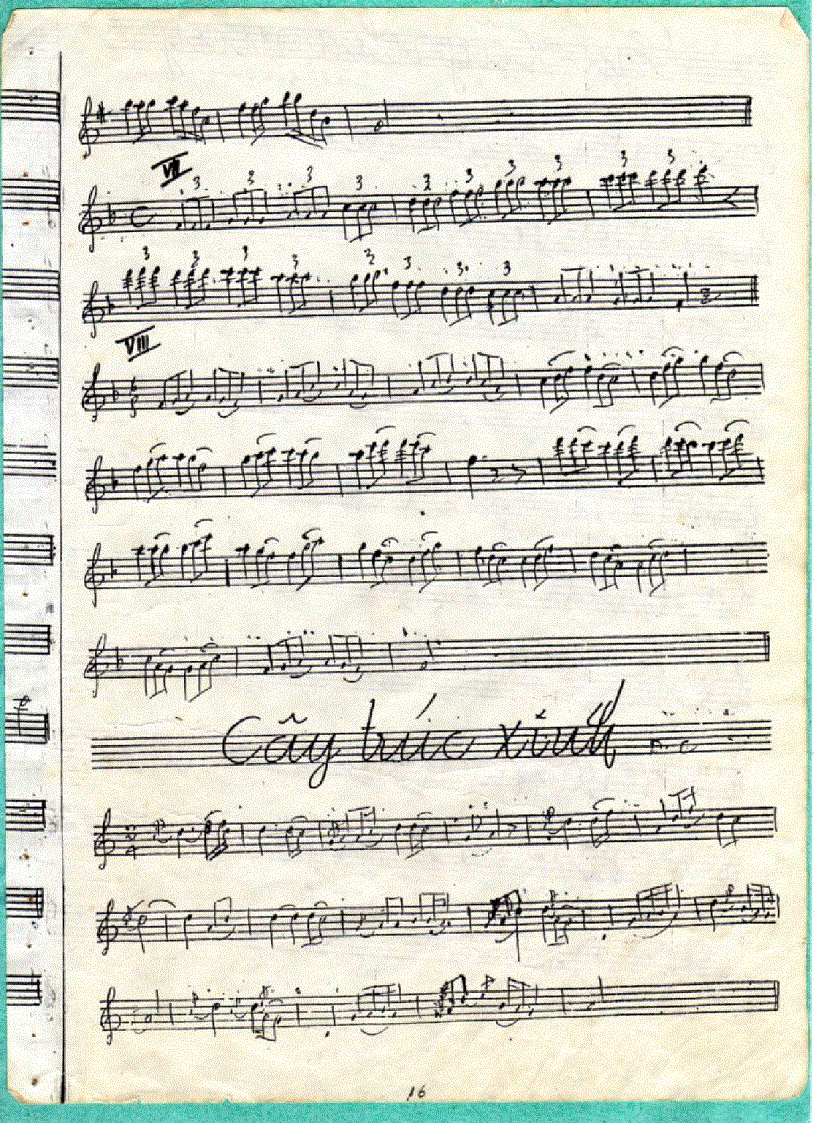 VII
3 3 3 3 3 3 3 3 3 3
3 3 3 3 3 3 3 3
VIII
Cây trúc xinh
2
4
16